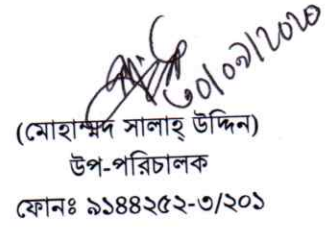 ৩০/০৯/২০২০
(মোহাম্মদ সালাহ্ উদ্দিন)
উপ-পরিচালক
ফোনঃ ৯১৪৪২৫২-৩/২০১